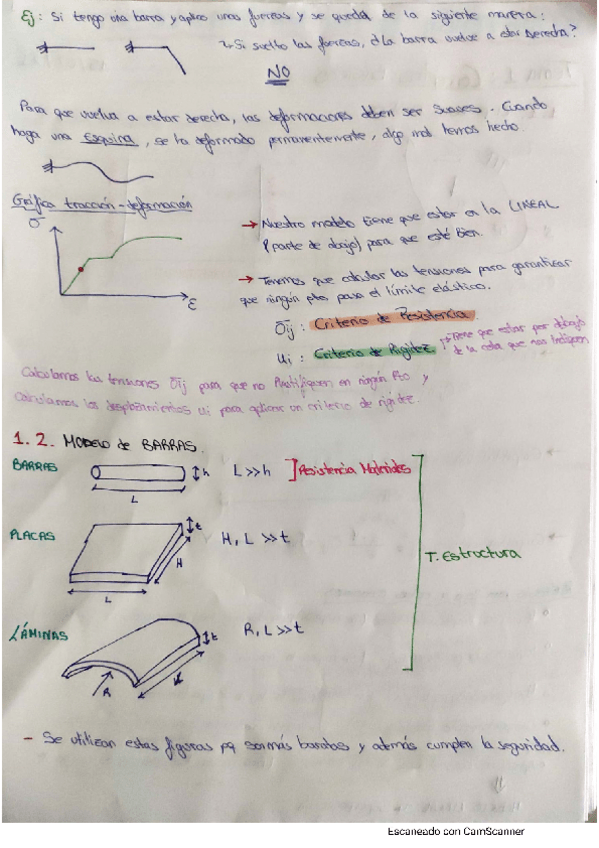 Ej: Si tengo una barra y aplico unas fuerzas y se queda de la siguiente manera:
Si suelto las fuerzas, ¿La barra vuelve a estar derecha?
NO
Para que vuelva a estar derecha, las deformaciones deben ser suaves. Cuando
haga una esquina, se ha deformado permanentemente, algo mal hemos hecho
Gráfica tracción-deformación
σ
ε
→ Nuestro modelo tiene que estar en la LINEAL
(parte de abajo) para que esté bien.
→ Tenemos que calcular las tensiones para garantizar
que ningún pto pasa el límite elástico.
σij : Criterio de Resistencia
ui : Criterio de Rigidez
Tiene que estar por debajo
de la cota que nos indiquen
Calculamos las tensiones σij para que no plastifiquen en ningún Pto y
calculamos los desplazamientos ui para optimar un criterio de rigidez.
1.2. MODELO DE BARRAS.
BARRAS
h
L>>h
Resistencia Materiales
L
PLACAS
t
H, L >>t
H
L
T. Estructura
LÁMINAS
t
R, L>>t
L
R
- Se utilizan estas figuras pq son más baratas y además cumplen la seguridad.
Escaneado con CamScanner